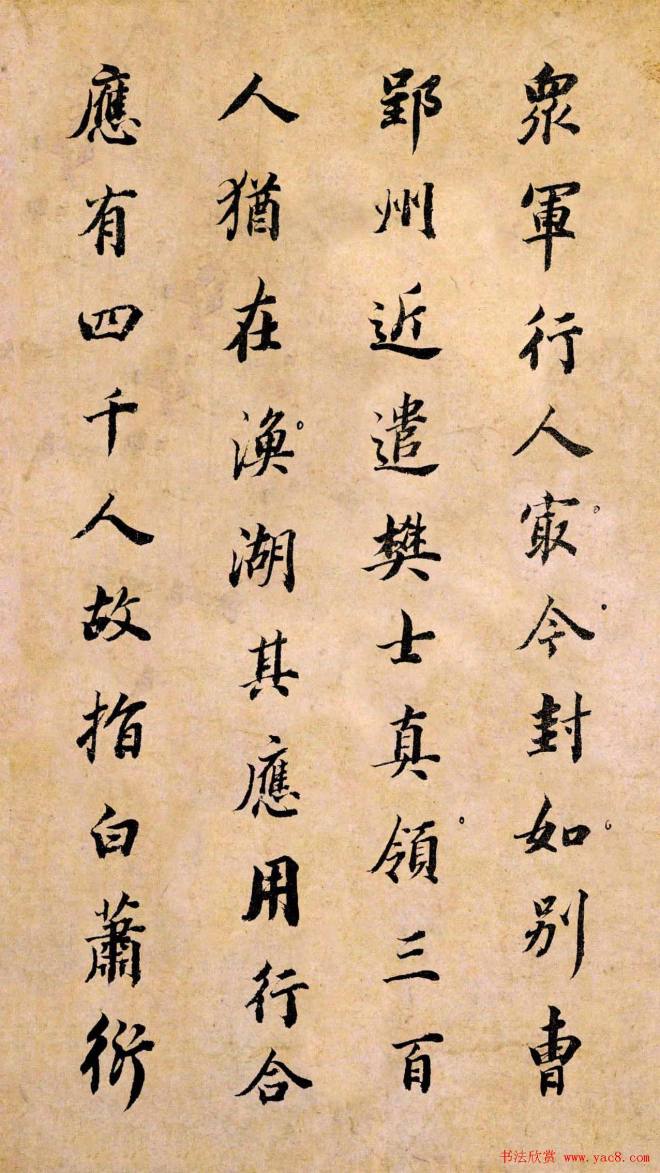 衆軍行人㝡今封如別曺
郢州近遣樊士真領三百
人猶在渙湖其應用行合
應有四千人故指白蕭衍
书法欣赏 www.yac8.com